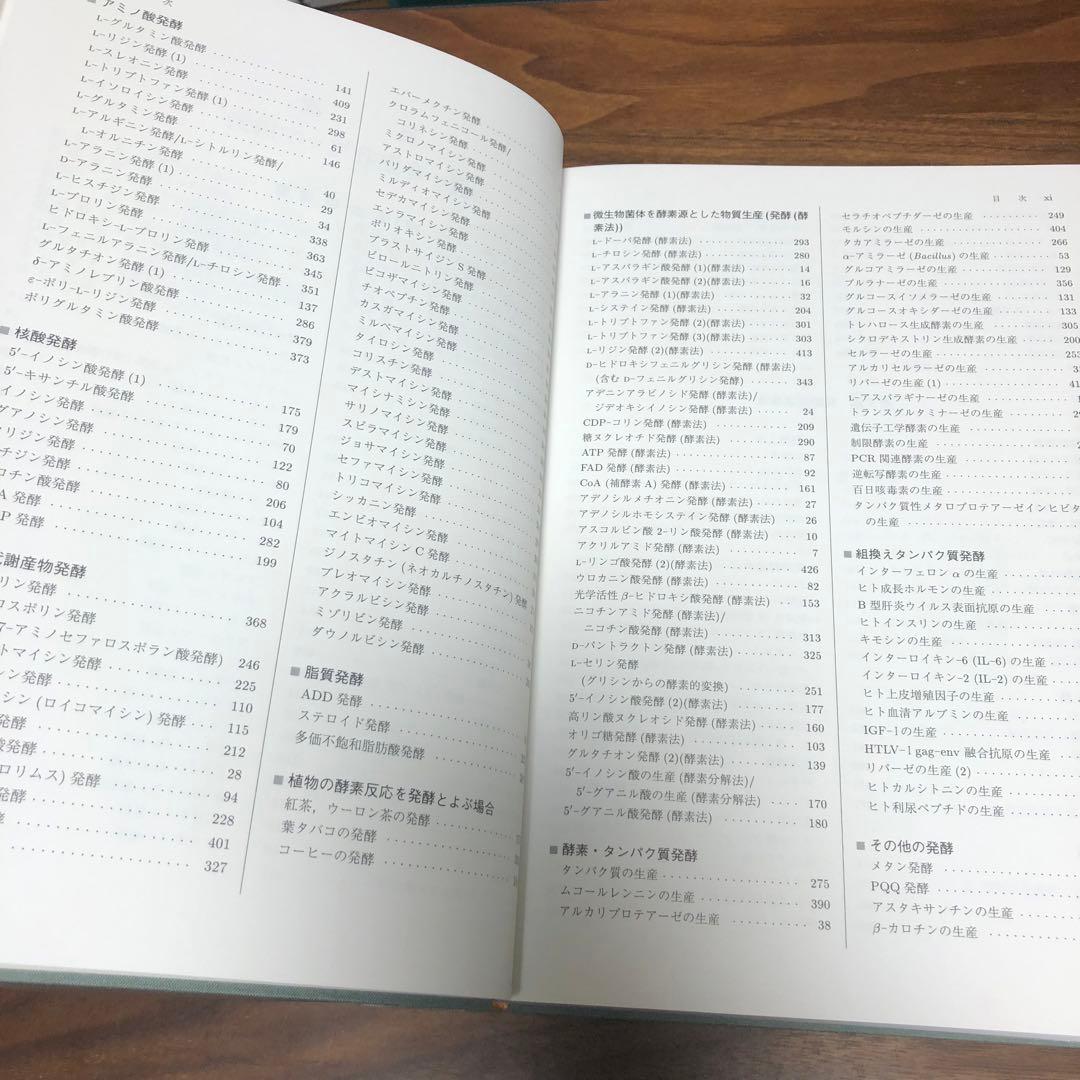 次
■ アミノ酸発酵
L-グルタミン酸発酵
L-リジン発酵 (1) 141
L-スレオニン発酵 409
L-トリプトファン発酵 (1) 231
L-イソロイシン発酵 298
L-グルタミン発酵 61
L-アルギニン発酵/L-シトルリン発酵/ 146
L-オルニチン発酵
L-アラニン発酵 (1) 40
D-アラニン発酵 29
L-ヒスチジン発酵 34
L-プロリン発酵 338
ヒドロキシ-L-プロリン発酵 363
L-フェニルアラニン発酵/L-チロシン発酵 345
グルタチオン発酵 (1) 351
δ-アミノレブリン酸発酵 137
ε-ポリ-L-リジン発酵 286
ポリグルタミン酸発酵 379
373
■ 核酸発酵
5′-イノシン酸発酵 (1)
5′-キサンチル酸発酵 175
イノシン発酵 179
グアノシン発酵 70
リジン発酵 122
チジン発酵 80
ロチン酸発酵 206
A 発酵 104
P 発酵 282
199
謝産物発酵
リン発酵
ロスポリン発酵 368
7-アミノセファロスポラン酸発酵) 246
トマイシン発酵 225
シン発酵 110
シン (ロイコマイシン) 発酵 115
発酵 212
酸発酵 28
ロリムス) 発酵 94
発酵 228
酵 401
327
エバーメクチン発酵
クロラムフェニコール発酵/
コリネシン発酵
ミクロノマイシン発酵
アストロマイシン発酵
バリダマイシン発酵
ミルディオマイシン発酵
セデカマイシン発酵
エンラマイシン発酵
ポリオキシン発酵
ブラストサイジン S 発酵
ピロールニトリン発酵
ビコザマイシン発酵
チオペプチン発酵
カスガマイシン発酵
ミルベマイシン発酵
タイロシン発酵
コリスチン発酵
デストマイシン発酵
マイシナミシン発酵
サリノマイシン発酵
スピラマイシン発酵
ジョサマイシン発酵
セファマイシン発酵
トリコマイシン発酵
シッカニン発酵
エンビオマイシン発酵
マイトマイシン C 発酵
ジノスタチン (ネオカルチノスタチン) 発酵
ブレオマイシン発酵
アクラルビシン発酵
ミゾリビン発酵
ダウノルビシン発酵
■ 脂質発酵
ADD 発酵
ステロイド発酵
多価不飽和脂肪酸発酵
■ 植物の酵素反応を発酵とよぶ場合
紅茶, ウーロン茶の発酵
葉タバコの発酵
コーヒーの発酵
目 次 xi
■ 微生物菌体を酵素源とした物質生産 (発酵 (酵
素法))
L-ドーパ発酵 (酵素法) 293
L-チロシン発酵 (酵素法) 280
L-アスパラギン酸発酵 (1)(酵素法) 14
L-アスパラギン酸発酵 (2)(酵素法) 16
L-アラニン発酵 (1)(酵素法) 32
L-システイン発酵 (酵素法) 204
L-トリプトファン発酵 (2)(酵素法) 301
L-トリプトファン発酵 (3)(酵素法) 303
L-リジン発酵 (2)(酵素法) 413
D-ヒドロキシフェニルグリシン発酵 (酵素法)
(含む D-フェニルグリシン発酵) 343
アデニンアラビノシド発酵 (酵素法)/
ジデオキシイノシン発酵 (酵素法) 24
CDP-コリン発酵 (酵素法) 209
糖ヌクレオチド発酵 (酵素法) 290
ATP 発酵 (酵素法) 87
FAD 発酵 (酵素法) 92
CoA (補酵素 A) 発酵 (酵素法) 161
アデノシルメチオニン発酵 (酵素法) 27
アデノシルホモシステイン発酵 (酵素法) 26
アスコルビン酸 2-リン酸発酵 (酵素法) 10
アクリルアミド発酵 (酵素法) 7
L-リンゴ酸発酵 (2)(酵素法) 426
ウロカニン酸発酵 (酵素法) 82
光学活性 β-ヒドロキシ酸発酵 (酵素法) 153
ニコチンアミド発酵 (酵素法)/
ニコチン酸発酵 (酵素法) 313
D-パントラクトン発酵 (酵素法) 325
L-セリン発酵
(グリシンからの酵素的変換) 251
5′-イノシン酸発酵 (2)(酵素法) 177
高リン酸ヌクレオシド発酵 (酵素法) 160
オリゴ糖発酵 (酵素法) 103
グルタチオン発酵 (2)(酵素法) 139
5′-イノシン酸の生産 (酵素分解法)/
5′-グアニル酸の生産 (酵素分解法) 170
5′-グアニル酸発酵 (酵素法) 180
■ 酵素・タンパク質発酵
タンパク質の生産 275
ムコールレンニンの生産 390
アルカリプロテアーゼの生産 38
セラチオペプチダーゼの生産 249
モルシンの生産 404
タカアミラーゼの生産 266
α-アミラーゼ (Bacillus) の生産 53
グルコアミラーゼの生産 129
プルラナーゼの生産 356
グルコースイソメラーゼの生産 131
グルコースオキシダーゼの生産 133
トレハロース生成酵素の生産 305
シクロデキストリン生成酵素の生産 200
セルラーゼの生産 253
アルカリセルラーゼの生産
リパーゼの生産 (1)
L-アスパラギナーゼの生産
トランスグルタミナーゼの生産
遺伝子工学酵素の生産
制限酵素の生産
PCR 関連酵素の生産
逆転写酵素の生産
百日咳毒素の生産
タンパク質性メタロプロテアーゼインヒビタ
の生産
■ 組換えタンパク質発酵
インターフェロン α の生産
ヒト成長ホルモンの生産
B 型肝炎ウイルス表面抗原の生産
ヒトインスリンの生産
キモシンの生産
インターロイキン-6 (IL-6) の生産
インターロイキン-2 (IL-2) の生産
ヒト上皮増殖因子の生産
ヒト血清アルブミンの生産
IGF-1の生産
HTLV-1 gag-env 融合抗原の生産
リパーゼの生産 (2)
ヒトカルシトニンの生産
ヒト利尿ペプチドの生産
■ その他の発酵
メタン発酵
PQQ 発酵
アスタキサンチンの生産
β-カロチンの生産